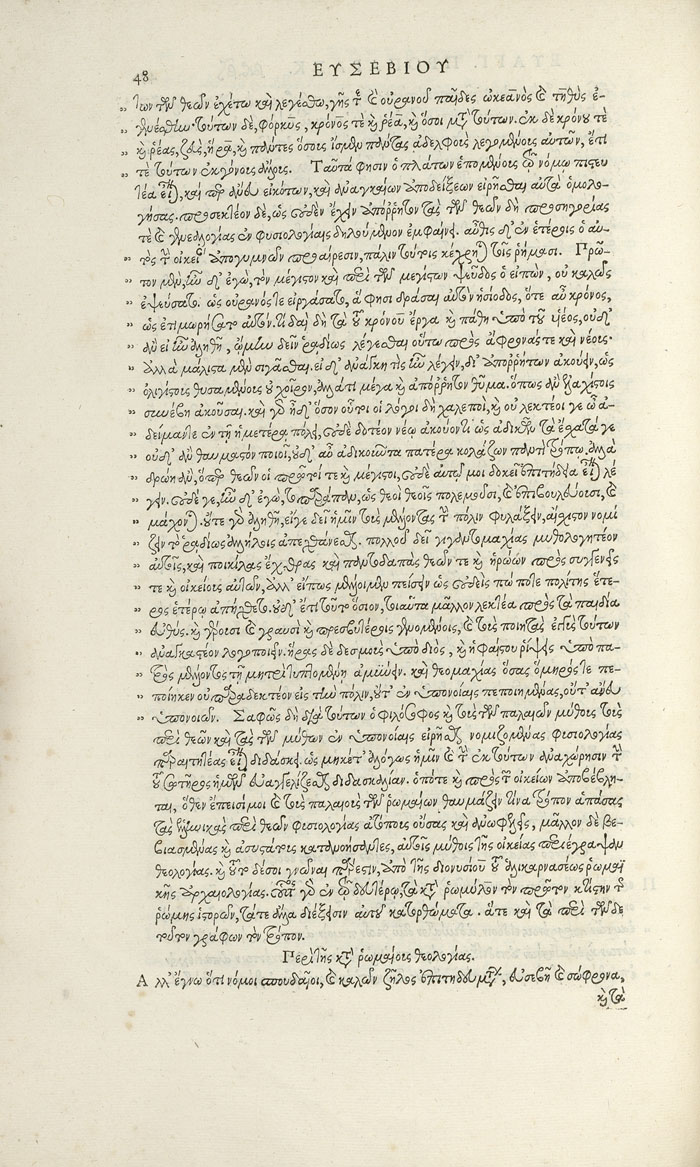 48 ΕΥΣΕΒΙΟΥ
των τῶν θεῶν ἐχέτω καὶ λεγέσθω, γῆς τὲ καὶ οὐρανοῦ παῖδες ὠκεανὸς καὶ τηθὺς ἐ-
γενέσθην. τούτων δὲ, φόρκυς, κρόνος τὲ καὶ ῥέα, καὶ ὅσοι μετὰ τούτων. ἐκ δὲ κρόνου τὲ
καὶ ῥέας, ζεὺς, ἥρα, καὶ πάντες ὅσους ἴσμεν πάντας ἀδελφοὺς λεγομένους αὐτῶν, ἔτι
τὲ τούτων ἐκγόνους ἄλλους. Ταῦτά φησιν ὁ πλάτων ἑπομένους τῷ νόμῳ πιστευ
τέα εἶναι, καὶ περ ἄνευ εἰκότων, καὶ ἀναγκαίων ἀποδείξεων εἰρῆσθαι αὐτὰ ὁμολο-
γήσας. προσεκτέον δὲ, ὡς οὐδὲν ἔχειν ἀπόρρητον τὰς τῶν θεῶν δὴ προσηγορίας
τὲ καὶ γενεαλογίας ἐν φυσιολογίαις δηλούμενον ἐμφαίνει. αὖθις δ' ἐν ἑτέροις ὁ αὐ-
τὸς τὴν οἰκείαν ἀπογυμνῶν προαίρεσιν, πάλιν τούτοις κέχρηται τοῖς ῥήμασι. Πρῶ-
τον μὲν, ἦν δ' ἐγὼ, τὸν μέγιστον καὶ περὶ τῶν μεγίστων ψεῦδος ὁ εἰπὼν, οὐ καλῶς
ἐψεύσατο. ὡς οὐρανός τε εἰργάσατο, ἅ φησι δρᾶσαι αὐτὸν ἡσίοδος, ὅτε αὖ κρόνος,
ὡς ἐτιμωρήσατο αὐτόν. τὰ δὲ δὴ τὰ τοῦ κρόνου ἔργα καὶ πάθη ὑπὸ τοῦ υἱέος, οὐδ'
ἂν εἰ ἦν ἀληθῆ, ᾤμην δεῖν ῥᾳδίως λέγεσθαι οὕτω πρὸς ἄφρονάς τε καὶ νέους.
ἀλλὰ μάλιστα μὲν σιγᾶσθαι. εἰ δ' ἀνάγκη τις ἦν λέγειν, δι' ἀπορρήτων ἀκούειν, ὡς
ὀλιγίστους θυσαμένους οὐ χοῖρον, ἀλλά τι μέγα καὶ ἀπόρρητον θῦμα. ὅπως ἂν ἐλαχίστοις
συνέβη ἀκοῦσαι. καὶ γὰρ ἦ δ' ὃς οὗτοι οἱ λόγοι δὴ χαλεποὶ, καὶ οὐ λεκτέοι γε ὦ ἀ-
δείμαντε ἐν τῇ ἡμετέρᾳ πόλει, οὐδὲ δοτέον νέῳ ἀκούοντι ὡς ἀδικῶν τὰ ἔσχατά γε
οὐδ' ἂν θαυμαστὸν ποιοῖ, οὐδ' αὖ ἀδικοῦντα πατέρα κολάζων παντὶ τρόπῳ, ἀλλὰ
δρῴη ἂν, ὅπερ θεῶν οἱ πρῶτοί τε καὶ μέγιστοι, οὐδὲ αὐτῷ μοι δοκεῖ ἐπιτήδεια εἶναι λέ
γειν. οὐδέ γε, ἦν δ' ἐγὼ, τοπαράπαν, ὡς θεοὶ θεοῖς πολεμοῦσι, καὶ ἐπιβουλεύουσι, καὶ
μάχονται. οὔτε γὰρ ἀληθῆ, εἴγε δεῖ ἡμῖν τοὺς μέλλοντας τὴν πόλιν φυλάξειν, αἴσχιστον νομί
ζειν τὸ ῥαδίως ἀλλήλοις ἀπεχθάνεσθαι. πολλοῦ δεῖ γιγαντομαχίας μυθολογητέον
αὐτοῖς, καὶ ποικίλας ἔχθρας καὶ παντοδαπὰς θεῶν τε καὶ ἡρώων πρὸς συγγενεῖς
τε καὶ οἰκείους αὐτῶν, ἀλλ' εἴπως μέλλοιμεν πείσειν ὡς οὐδεὶς πώ ποτε πολίτης ἕτε-
ρος ἑτέρῳ ἀπήχθετο. οὐδ' ἔτι τοῦτο ὅσιον, τοιαῦτα μᾶλλον λεκτέα πρὸς τὰ παιδία
εὐθύς. καὶ γέρουσι καὶ γραυσὶ καὶ πρεσβυτέροις γενομένοις, καὶ τοὺς ποιητὰς ἐγγὺς τούτων
ἀναγκαστέον λογοποιεῖν. ἥρας δὲ δεσμοὺς ὑπὸ διὸς, καὶ ἡφαίστου ῥίψεις ὑπὸ πα-
τρὸς μέλλοντος τῇ μητρὶ τυπτομένῃ ἀμύνειν. καὶ θεομαχίας ὅσας ὅμηρός τε πε-
ποίηκεν οὐ παραδεκτέον εἰς τὴν πόλιν, οὔτ' ἐν ὑπονοίαις πεποιημένας, οὔτ' ἄνευ
ὑπονοιῶν. Σαφῶς δὴ διὰ τούτων ὁ φιλόσοφος καὶ τοὺς τῶν παλαιῶν μύθους τοὺς
περὶ θεῶν καὶ τὰς τῶν μύθων ἐν ὑπονοίαις εἰρῆσθαι νομιζομένας φυσιολογίας
παραιτητέας εἶναι διδάσκει. ὡς μηκέτ' ἀλόγως ἡμῖν καὶ τὴν ἐκ τούτων ἀναχώρησιν τὴν
τοῦ σωτῆρος ἡμῶν εὐαγγελίζεσθαι διδασκαλίαν. ὁπότε καὶ πρὸς τῶν οἰκείων ἀποβέβλη-
ται, ὅθεν ἔπεισί μοι καὶ τοὺς παλαιοὺς τῶν ῥωμαίων θαυμάζειν τίνα τρόπον ἁπάσας
τὰς ἑλληνικὰς περὶ θεῶν φυσιολογίας ἀτόπους οὔσας καὶ ἀνωφελεῖς, μᾶλλον δὲ βε-
βιασμένας καὶ ἀσυστάτους κατανοήσαντες, αὐτοῖς μύθοις τῆς οἰκείας περιέγραψαν
θεολογίας. καὶ τοῦτο δέ σοι γνῶναι πάρεστιν, ἀπὸ τῆς διονυσίου τοῦ ἁλικαρνασέως ῥωμαϊ
κῆς ἀρχαιολογίας. οὗτος γὰρ ἐν τῷ δευτέρῳ, τὰ κατὰ ῥωμύλον τὸν πρῶτον κτίστην τῆς
ῥώμης ἱστορῶν, τά τε ἄλλα διέξεισιν αὐτοῦ κατορθώματα. ἅτε καὶ τὰ περὶ τῶν δε
τοῦτον γράφων τὸν τρόπον.
Περὶ τῆς κατὰ ῥωμαίους θεολογίας.
Αλλ' ἔγνω ὅτι νόμοι σπουδαῖοι, καὶ καλῶν ζῆλος ἐπιτηδευμάτων, εὐσεβῆ καὶ σώφρονα,
καὶ τὰ